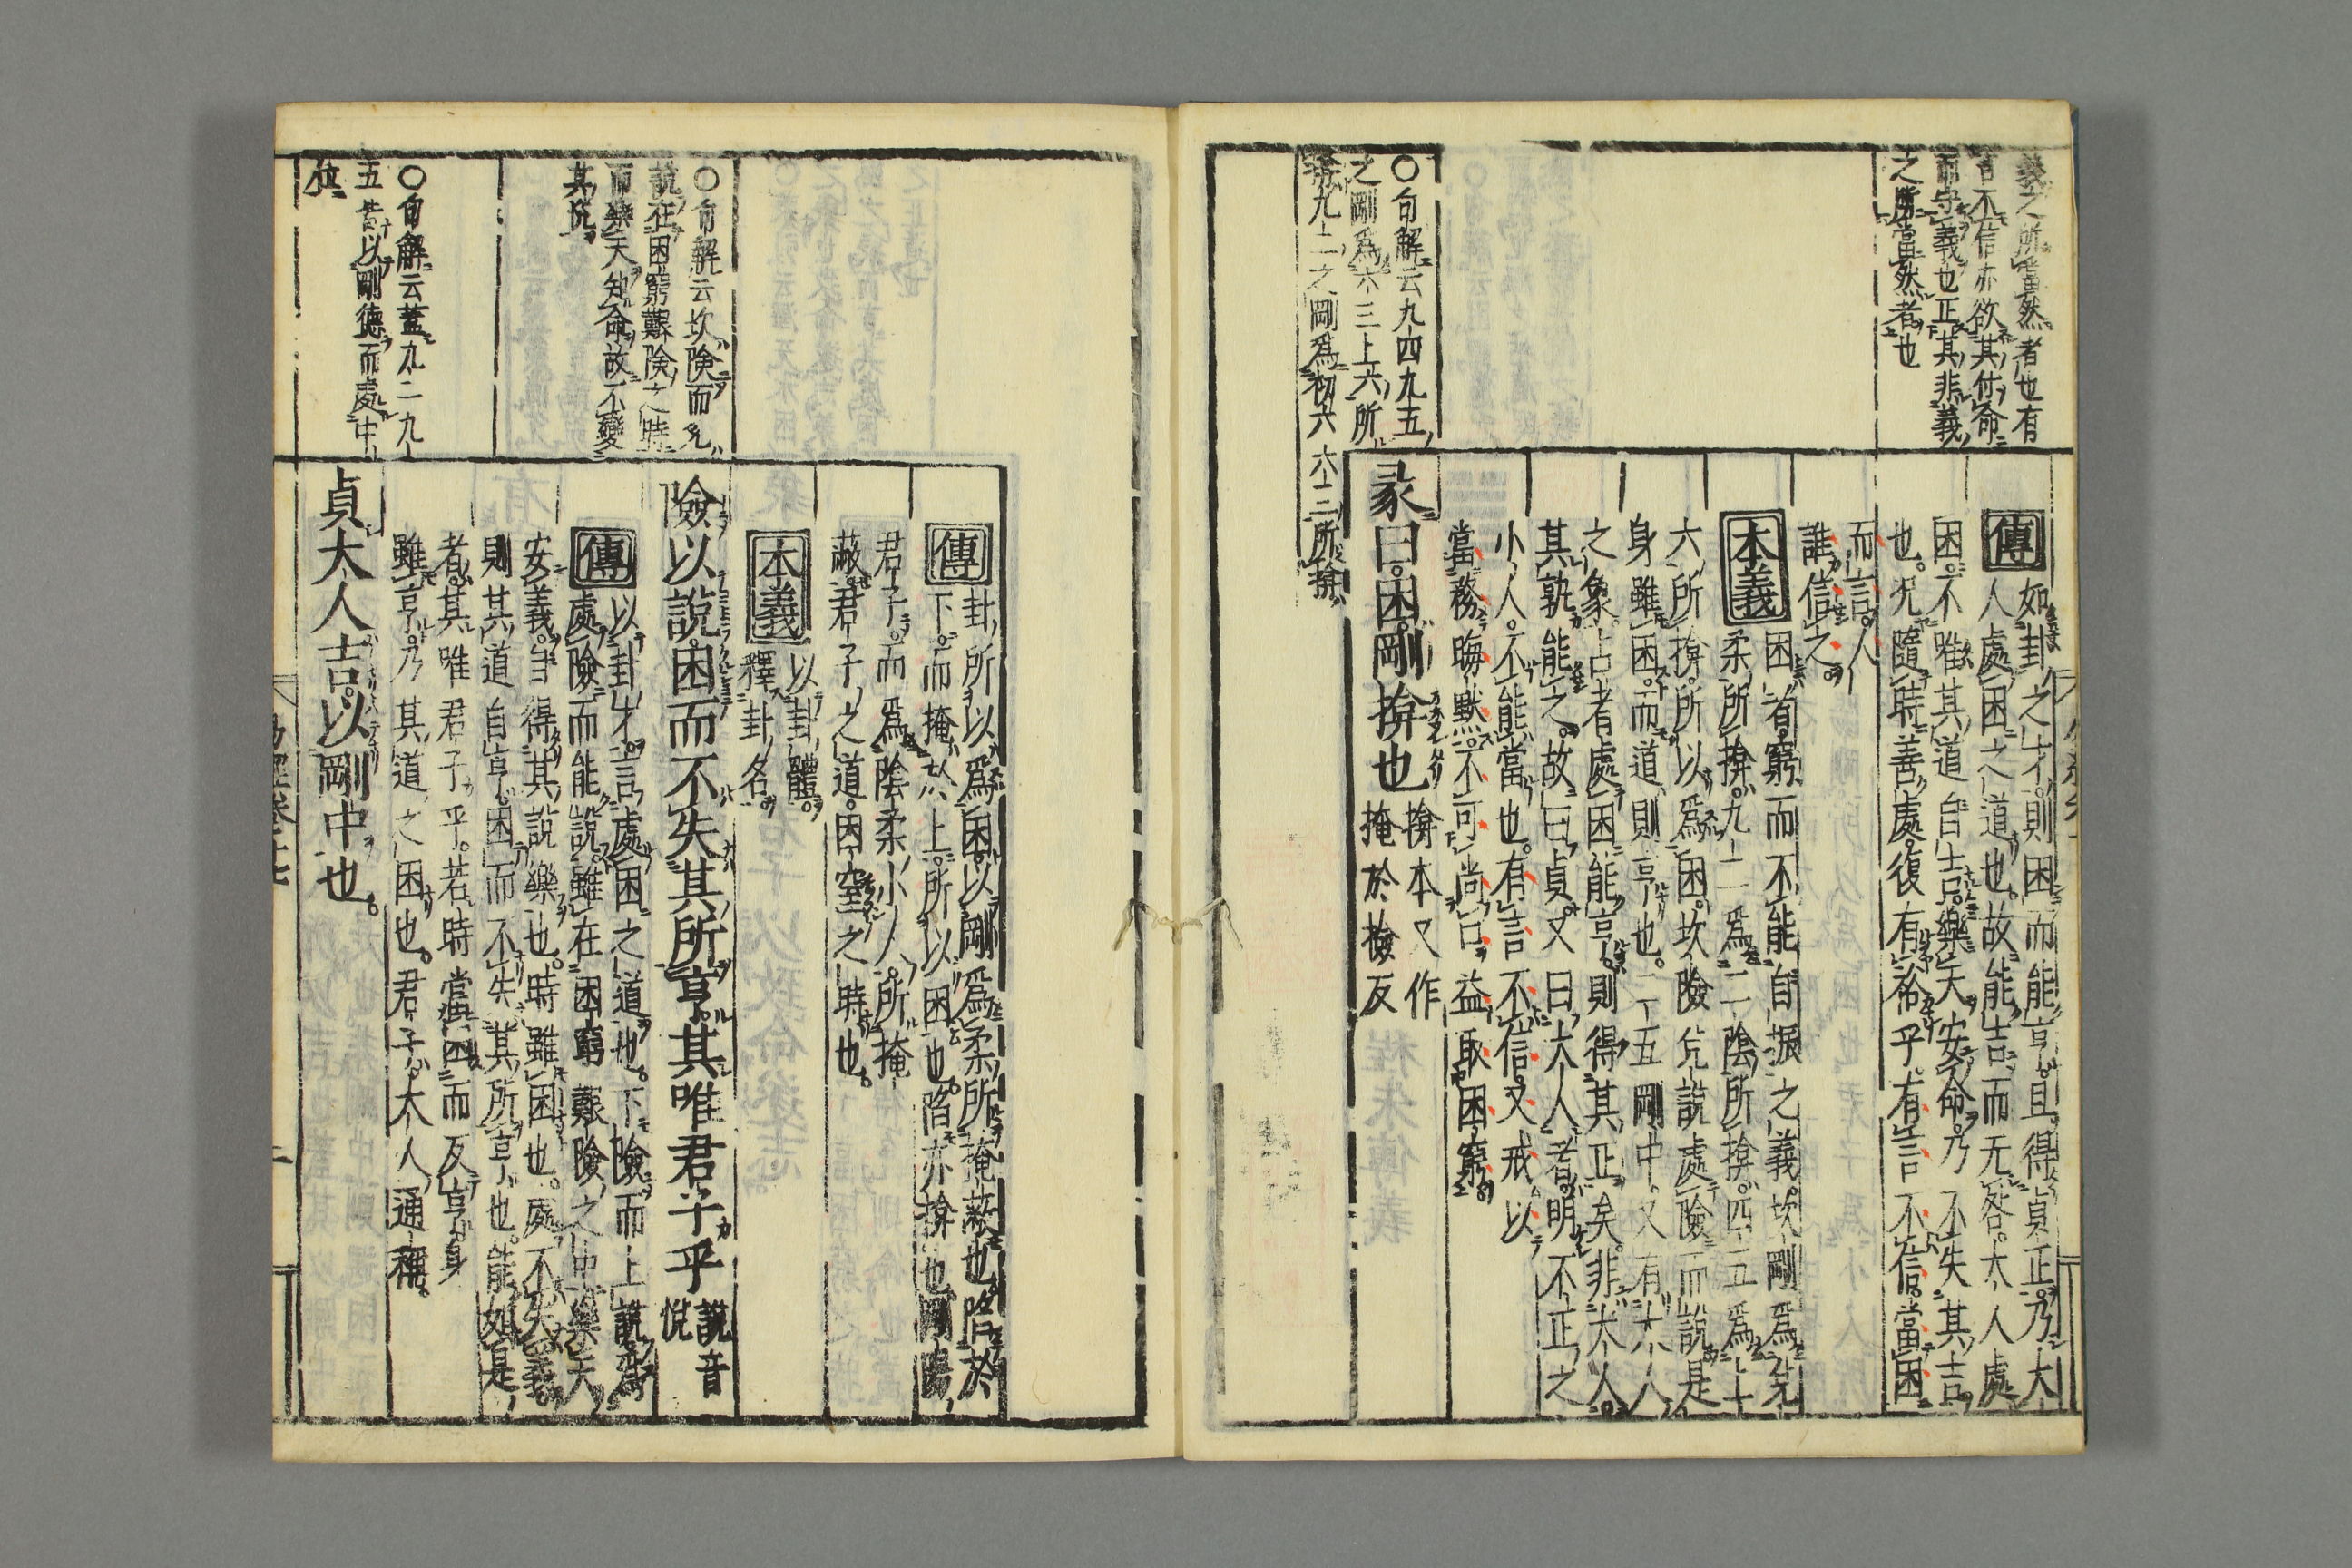 義之所當然者也有
言不信亦欲其付命
而守義也正其非義
之所當然者也
傳 如卦之才則困而能亨且得貞正乃大
人處困之道也故能吉而无咎大人處
困不唯其道自吉樂天安命乃不失其吉
也況隨時善處復有裕乎有言不信當困
而言人
誰信之
本義 困者窮而不能自振之義坎剛爲兌
柔所揜九二爲二陰所揜四五爲上
六所揜所以爲困坎險兌說處險而說是
身雖困而道則亨也二五剛中又有大人
之象占者處困能亨則得其正矣非大人
其孰能之故曰貞又曰大人者明不正之
小人不能當也有言不信又戒以
當務晦默不可尚口益取困窮
○句解云九四九五
之剛爲六三上六所
揜九二之剛爲初六六三所揜
彖曰困剛揜也 揜本又作
掩於撿反
傳 卦所以爲困以剛爲柔所掩蔽也陷於
下而掩於上所以困也陷亦揜也剛陽
君子而爲陰柔小人所掩
蔽君子之道困窒之時也
本義 以卦體
釋卦名
○句解云坎險而兌
說在困窮艱險之時
而樂天知命故不變
其悅
險以說困而不失其所亨其唯君子乎 說音
悅
傳 以卦才言處困之道也下險而上說爲
處險而能說雖在困窮艱險之中樂天
安義自得其說樂也時雖困也處不失義
則其道自亨困而不失其所亨也能如是
者其唯君子乎若時當困而反亨身
雖亨乃其道之困也君子大人通稱
○句解云蓋九二九
五皆以剛德而處中
位
貞大人吉以剛中也